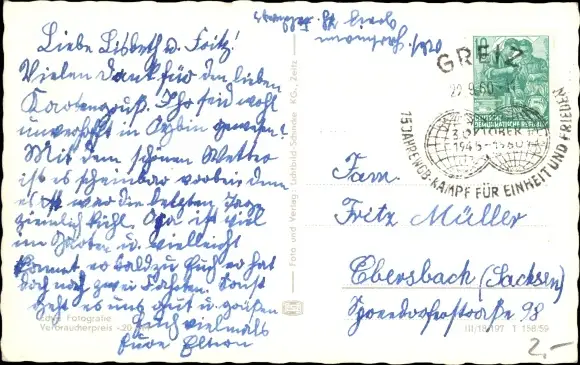 Liebe Lisbeth u. Fritz!
Vielen Dank für den lieben
Kartengruß. Ihr seid wohl
unverhofft in Oybin gewesen?
Mit dem schönen Wetter
ist es scheinbar vorbei, denn
es war die letzten Tage
ziemlich kühl. Opa ist viel
im Garten u. vielleicht
kommt er bald zu Euch, er hat
doch noch zwei Fahrten. Sonst
geht es uns gut u. grüßen
Euch vielmals
Eure Eltern
Echte Fotografie
Verbraucherpreis -20
Foto und Verlag KG., Zeitz
Abs.
Greiz
GREIZ
60
10
DEUTSCHE
DEMOKRATISCHE REPUBLIK
3. OKTOBER
1945-1960
15 JAHRE WGB-KAMPF FÜR EINHEIT UND FRIEDEN
Fam.
Fritz Müller
Ebersbach (Sachsen)
98
III/18/197 T 158/59
2.-